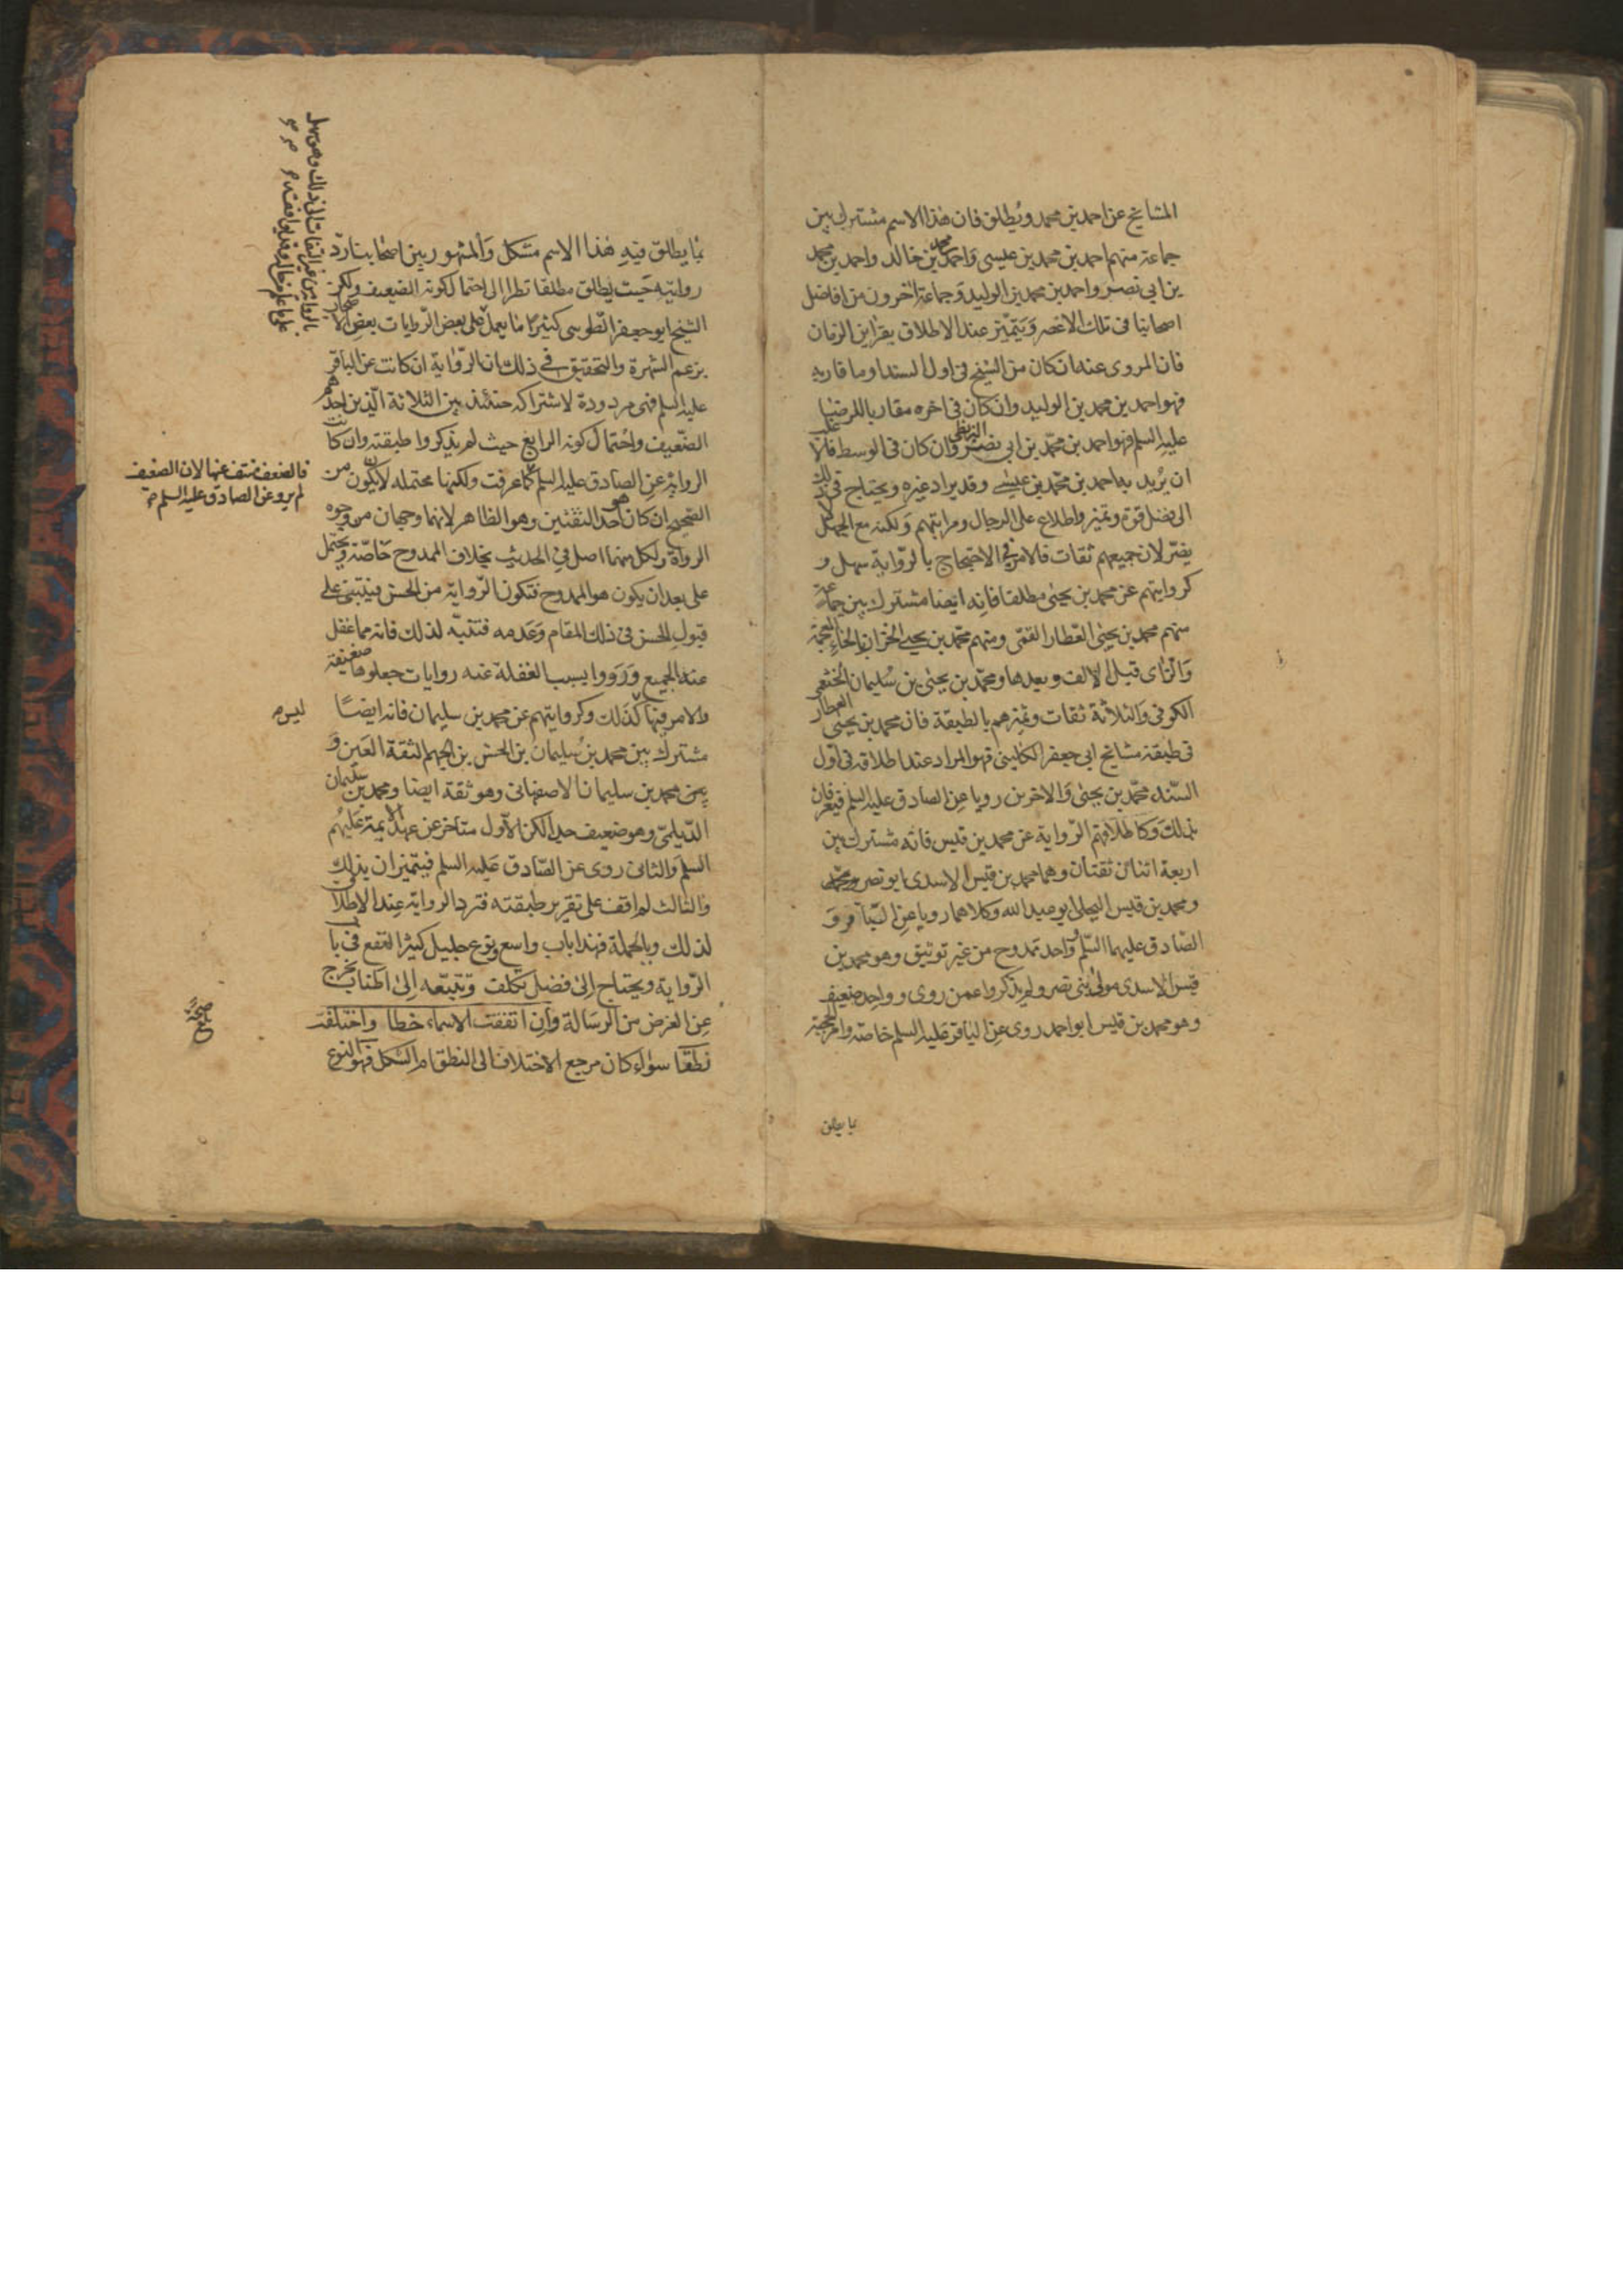 المشايخ عن احمد بن محمد ويطلق فان هذا الاسم مشترك بين
جماعة منهم احمد بن محمد بن عيسى واحمد بن محمد بن خالد واحمد بن محمد
بن ابي نصر واحمد بن محمد بن الوليد وجماعة اخرون من افاضل
اصحابنا في تلك الاعصر ويتميز عند الاطلاق بقراين الزمان
فان المروي عنه ان كان من الشيخ في اول السند او ما قاربه
فهو احمد بن محمد بن الوليد وان كان في اخره مقاربا للرضا
عليه السلم فهو احمد بن محمد بن ابي نصر البزنطي وان كان في الوسط فالاغلب
ان يريد به احمد بن محمد بن عيسى وقد يراد غيره ويحتاج في ذلك
الى فضل قوة وتميز واطلاع على الرجال ومراتبهم ولكنه مع الجهل لا
يضر لان جميعهم ثقات فالامر في الاحتجاج بالرواية سهل و
كروايتهم عن محمد بن يحيى مطلقا فانه ايضا مشترك بين جماعة
منهم محمد بن يحيى العطار القمي ومنهم محمد بن يحيى الخزاز بالخاء المعجمة
والزاى قبل الالف وبعدها ومحمد بن يحيى بن سليمان الخثعمي
الكوفي والثلاثة ثقات وتميزهم بالطبقة فان محمد بن يحيى العطار
في طبقة مشايخ ابي جعفر الكليني فهو المراد عند اطلاقه في اول
السند محمد بن يحيى والاخرين رويا عن الصادق عليه السلم فيعرفان
بذلك وكاطلاقهم الرواية عن محمد بن قيس فانه مشترك بين
اربعة اثنان ثقتان وهما محمد بن قيس الاسدي ابو نصر
ومحمد بن قيس البجلي ابو عبد الله وكلاهما رويا عن الباقر و
الصادق عليهما السلم وواحد ممدوح من غير توثيق وهو محمد بن
قيس الاسدي مولى بني نصر ولم يذكروا عمن روى وواحد ضعيف
وهو محمد بن قيس ابو احمد روى عن الباقر عليه السلم خاصة وامر الحجية
بما يطلق
بما يطلق فيه هذا الاسم مشكل والمشهور بين اصحابنا رد
روايته حيث يطلق مطلقا نظرا الى احتمال كونه الضعيف ولكن
الشيخ ابو جعفر الطوسي كثيرا ما يعمل على بعض الروايات بعض الاصحاب
بزعم الشهرة والتحقيق في ذلك ان الرواية ان كانت عن الباقر
عليه السلم فهي مردودة لاشتراكه حينئذ بين الثلاثة الذين احدهم
الضعيف واحتمال كونه الرابع حيث لم يذكروا طبقته وان كانت
الرواية عن الصادق عليه السلم كما عرفت ولكنها محتملة لان يكون من
الصحيح ان كان هو احد الثقتين وهو الظاهر لانهما وجهان من وجوه
الرواة ولكل منهما اصل في الحديث بخلاف الممدوح خاصة ويحتمل
على بعد ان يكون هو الممدوح فتكون الرواية من الحسن فيبتنى على
قبول الحسن في ذلك المقام وعدمه فتنبه لذلك فانه مما غفل
عنه الجميع وردوا بسبب الغفلة عنه روايات جعلوها ضعيفة
والامر فيها كذلك وكروايتهم عن محمد بن سليمان فانه ايضا
ليس
مشترك بين محمد بن سليمان بن الحسن بن الجهم الثقة العين و
بين محمد بن سليمان الاصفهاني وهو ثقة ايضا ومحمد بن سليمان
الديلمي وهو ضعيف جدا لكن الاول متاخر عن عهد الائمة عليهم
السلم والثاني روى عن الصادق عليه السلم فيتميزان بذلك
والثالث لم اقف على تقرير طبقته فترد الرواية عند الاطلاق
لذلك وبالجملة فهذا باب واسع ونوع جليل كثير النفع في باب
الرواية ويحتاج الى فضل تكلف وتتبعه الى اطناب يخرج
عن الغرض من الرسالة وان اتفقت الاسماء خطا واختلفت
نطقا سواء كان مرجع الاختلاف الى النطق ام الشكل فهو النوع
فالضعف منتف عنها لان الضعيف
لم يرو عن الصادق عليه السلم